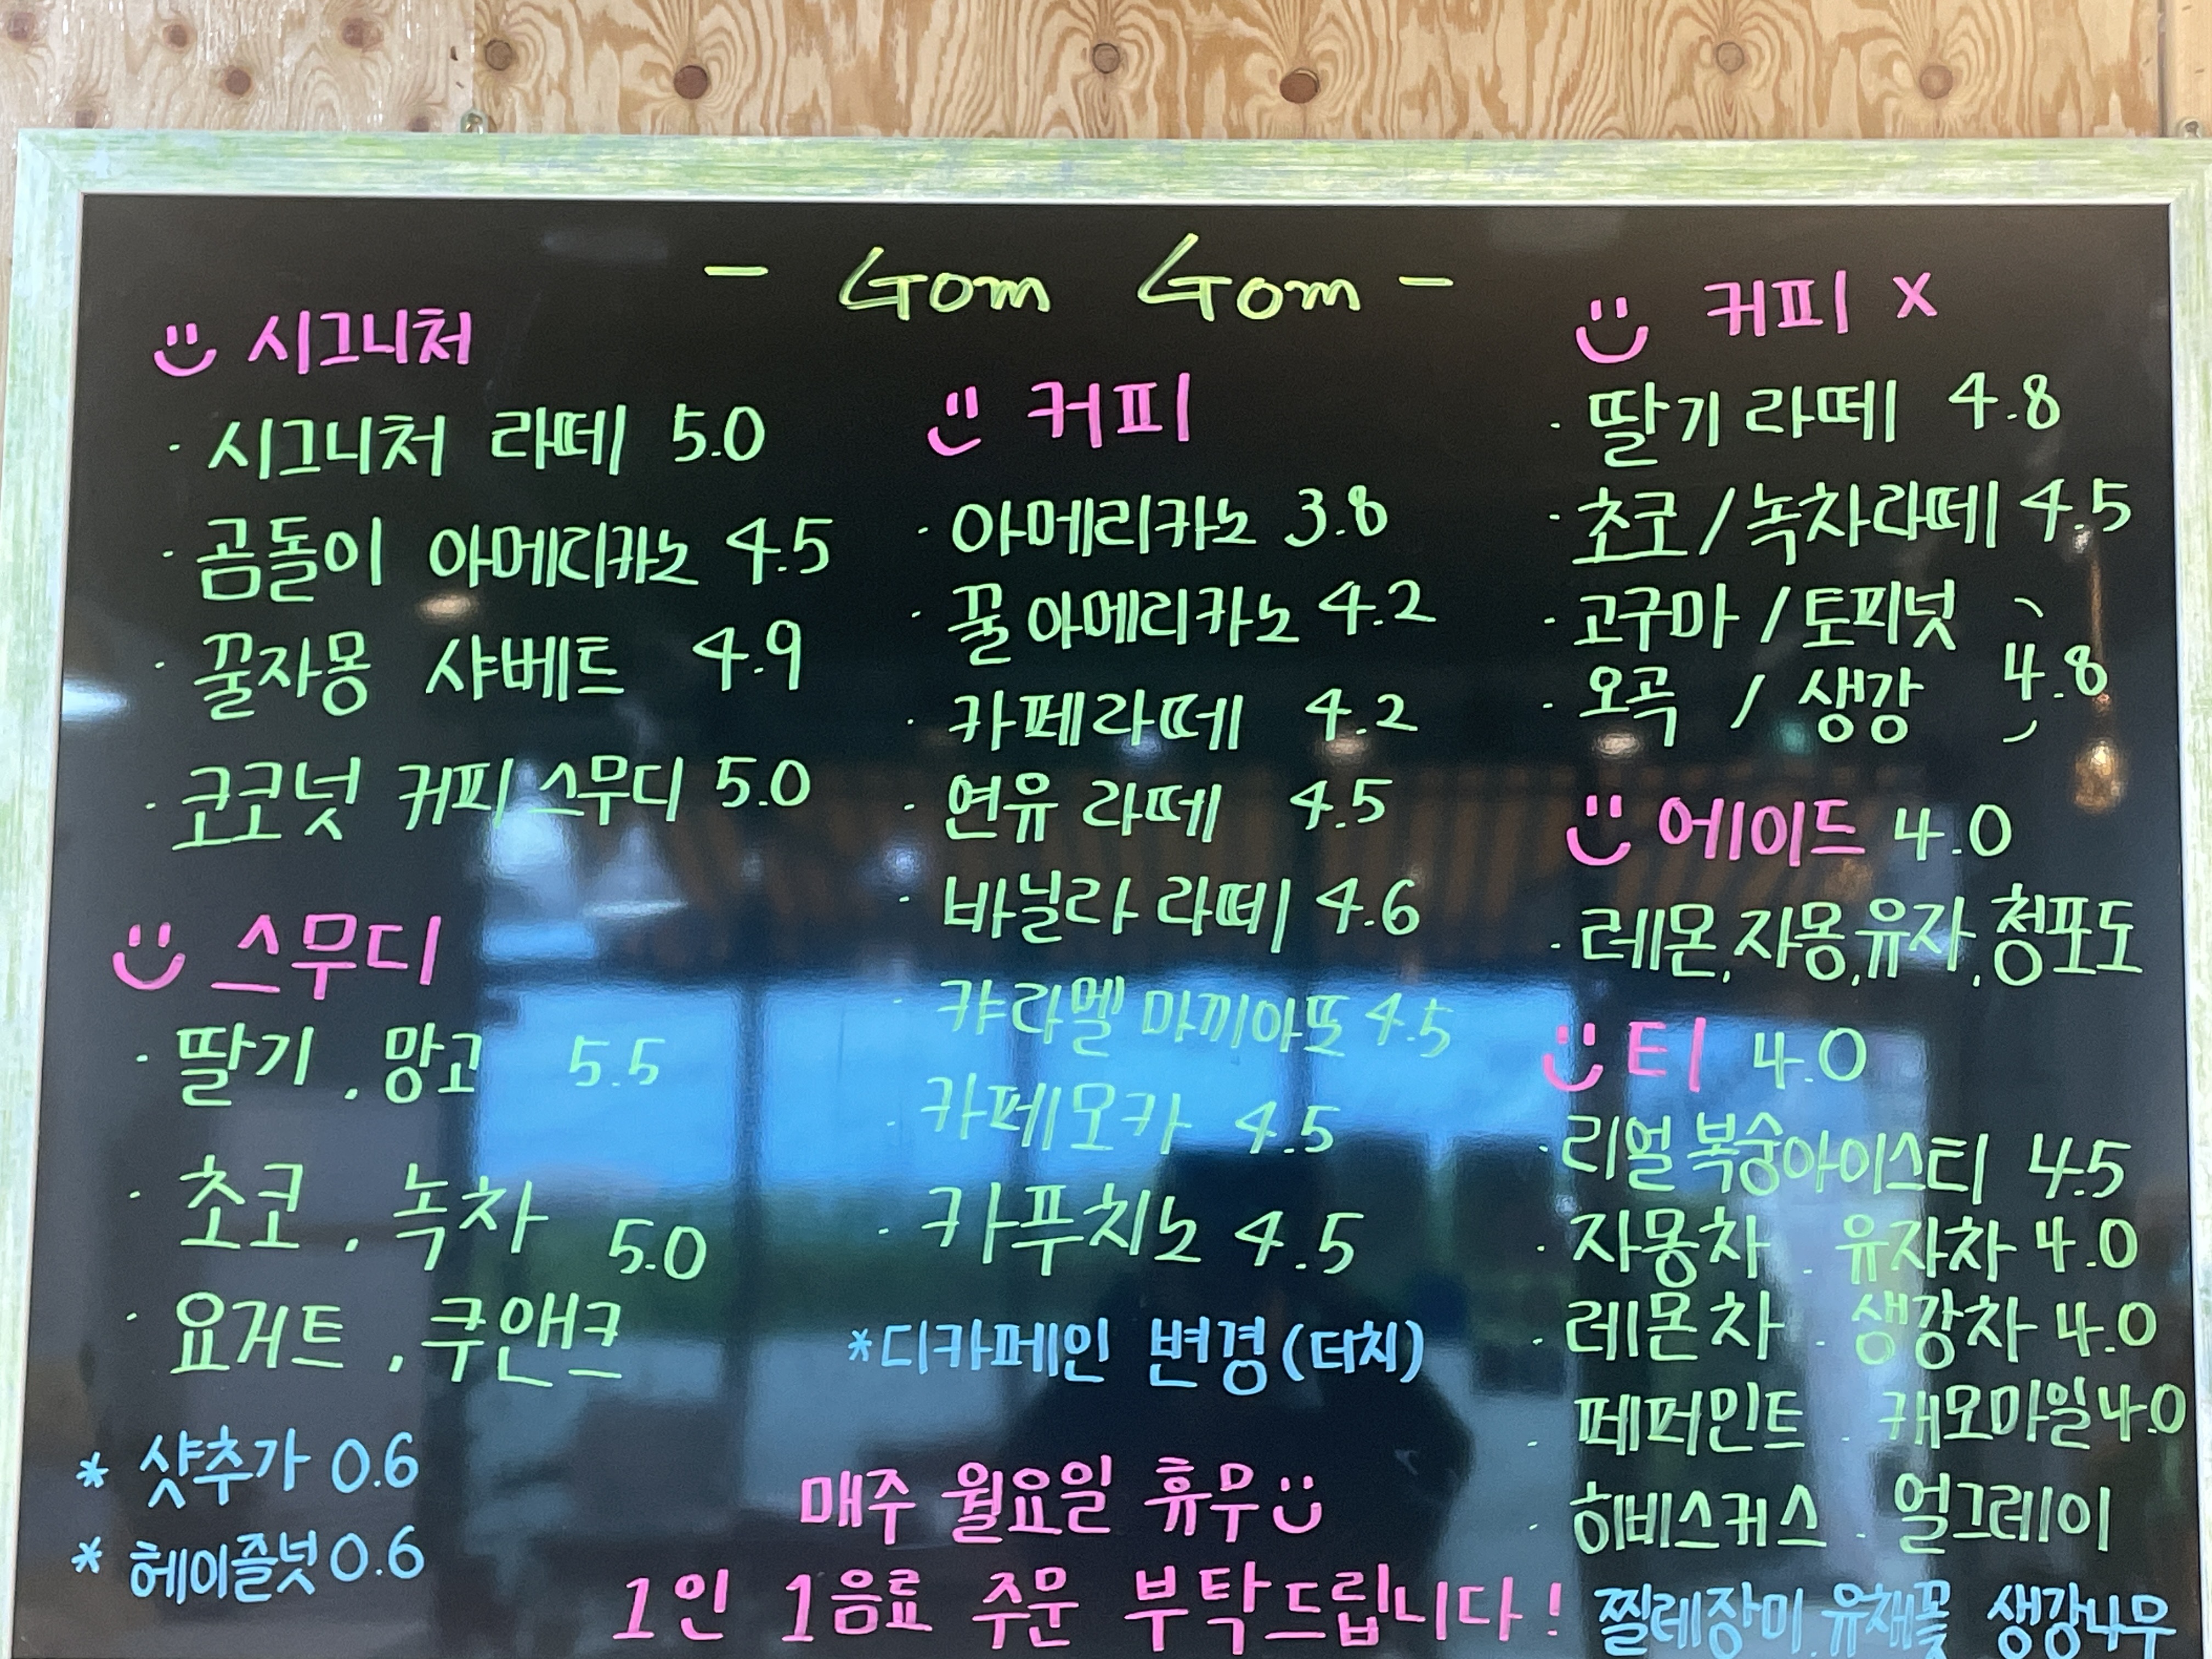 - Gom Gom -
시그니처
· 시그니처 라떼 5.0
· 곰돌이 아메리카노 4.5
· 꿀자몽 샤베트 4.9
· 코코넛 커피스무디 5.0
스무디
· 딸기 . 망고 5.5
· 초코 . 녹차 5.0
· 요거트 . 쿠앤크
* 샷추가 0.6
* 헤이즐넛 0.6
커피
· 아메리카노 3.8
· 꿀아메리카노 4.2
· 카페라떼 4.2
· 연유 라떼 4.5
· 바닐라 라떼 4.6
· 캬라멜 마끼아또 4.5
· 카페모카 4.5
· 카푸치노 4.5
*디카페인 변경(더치)
매주 월요일 휴무
1인 1음료 주문 부탁드립니다!
커피 X
· 딸기 라떼 4.8
· 초코/녹차라떼 4.5
· 고구마/토피넛
· 오곡 / 생강 4.8
에이드 4.0
· 레몬,자몽,유자,청포도
티 4.0
· 리얼 복숭아아이스티 4.5
· 자몽차 . 유자차 4.0
· 레몬차 . 생강차 4.0
· 페퍼민트 . 캐모마일 4.0
· 히비스커스 . 얼그레이
찔레장미,유채꽃 생강나무